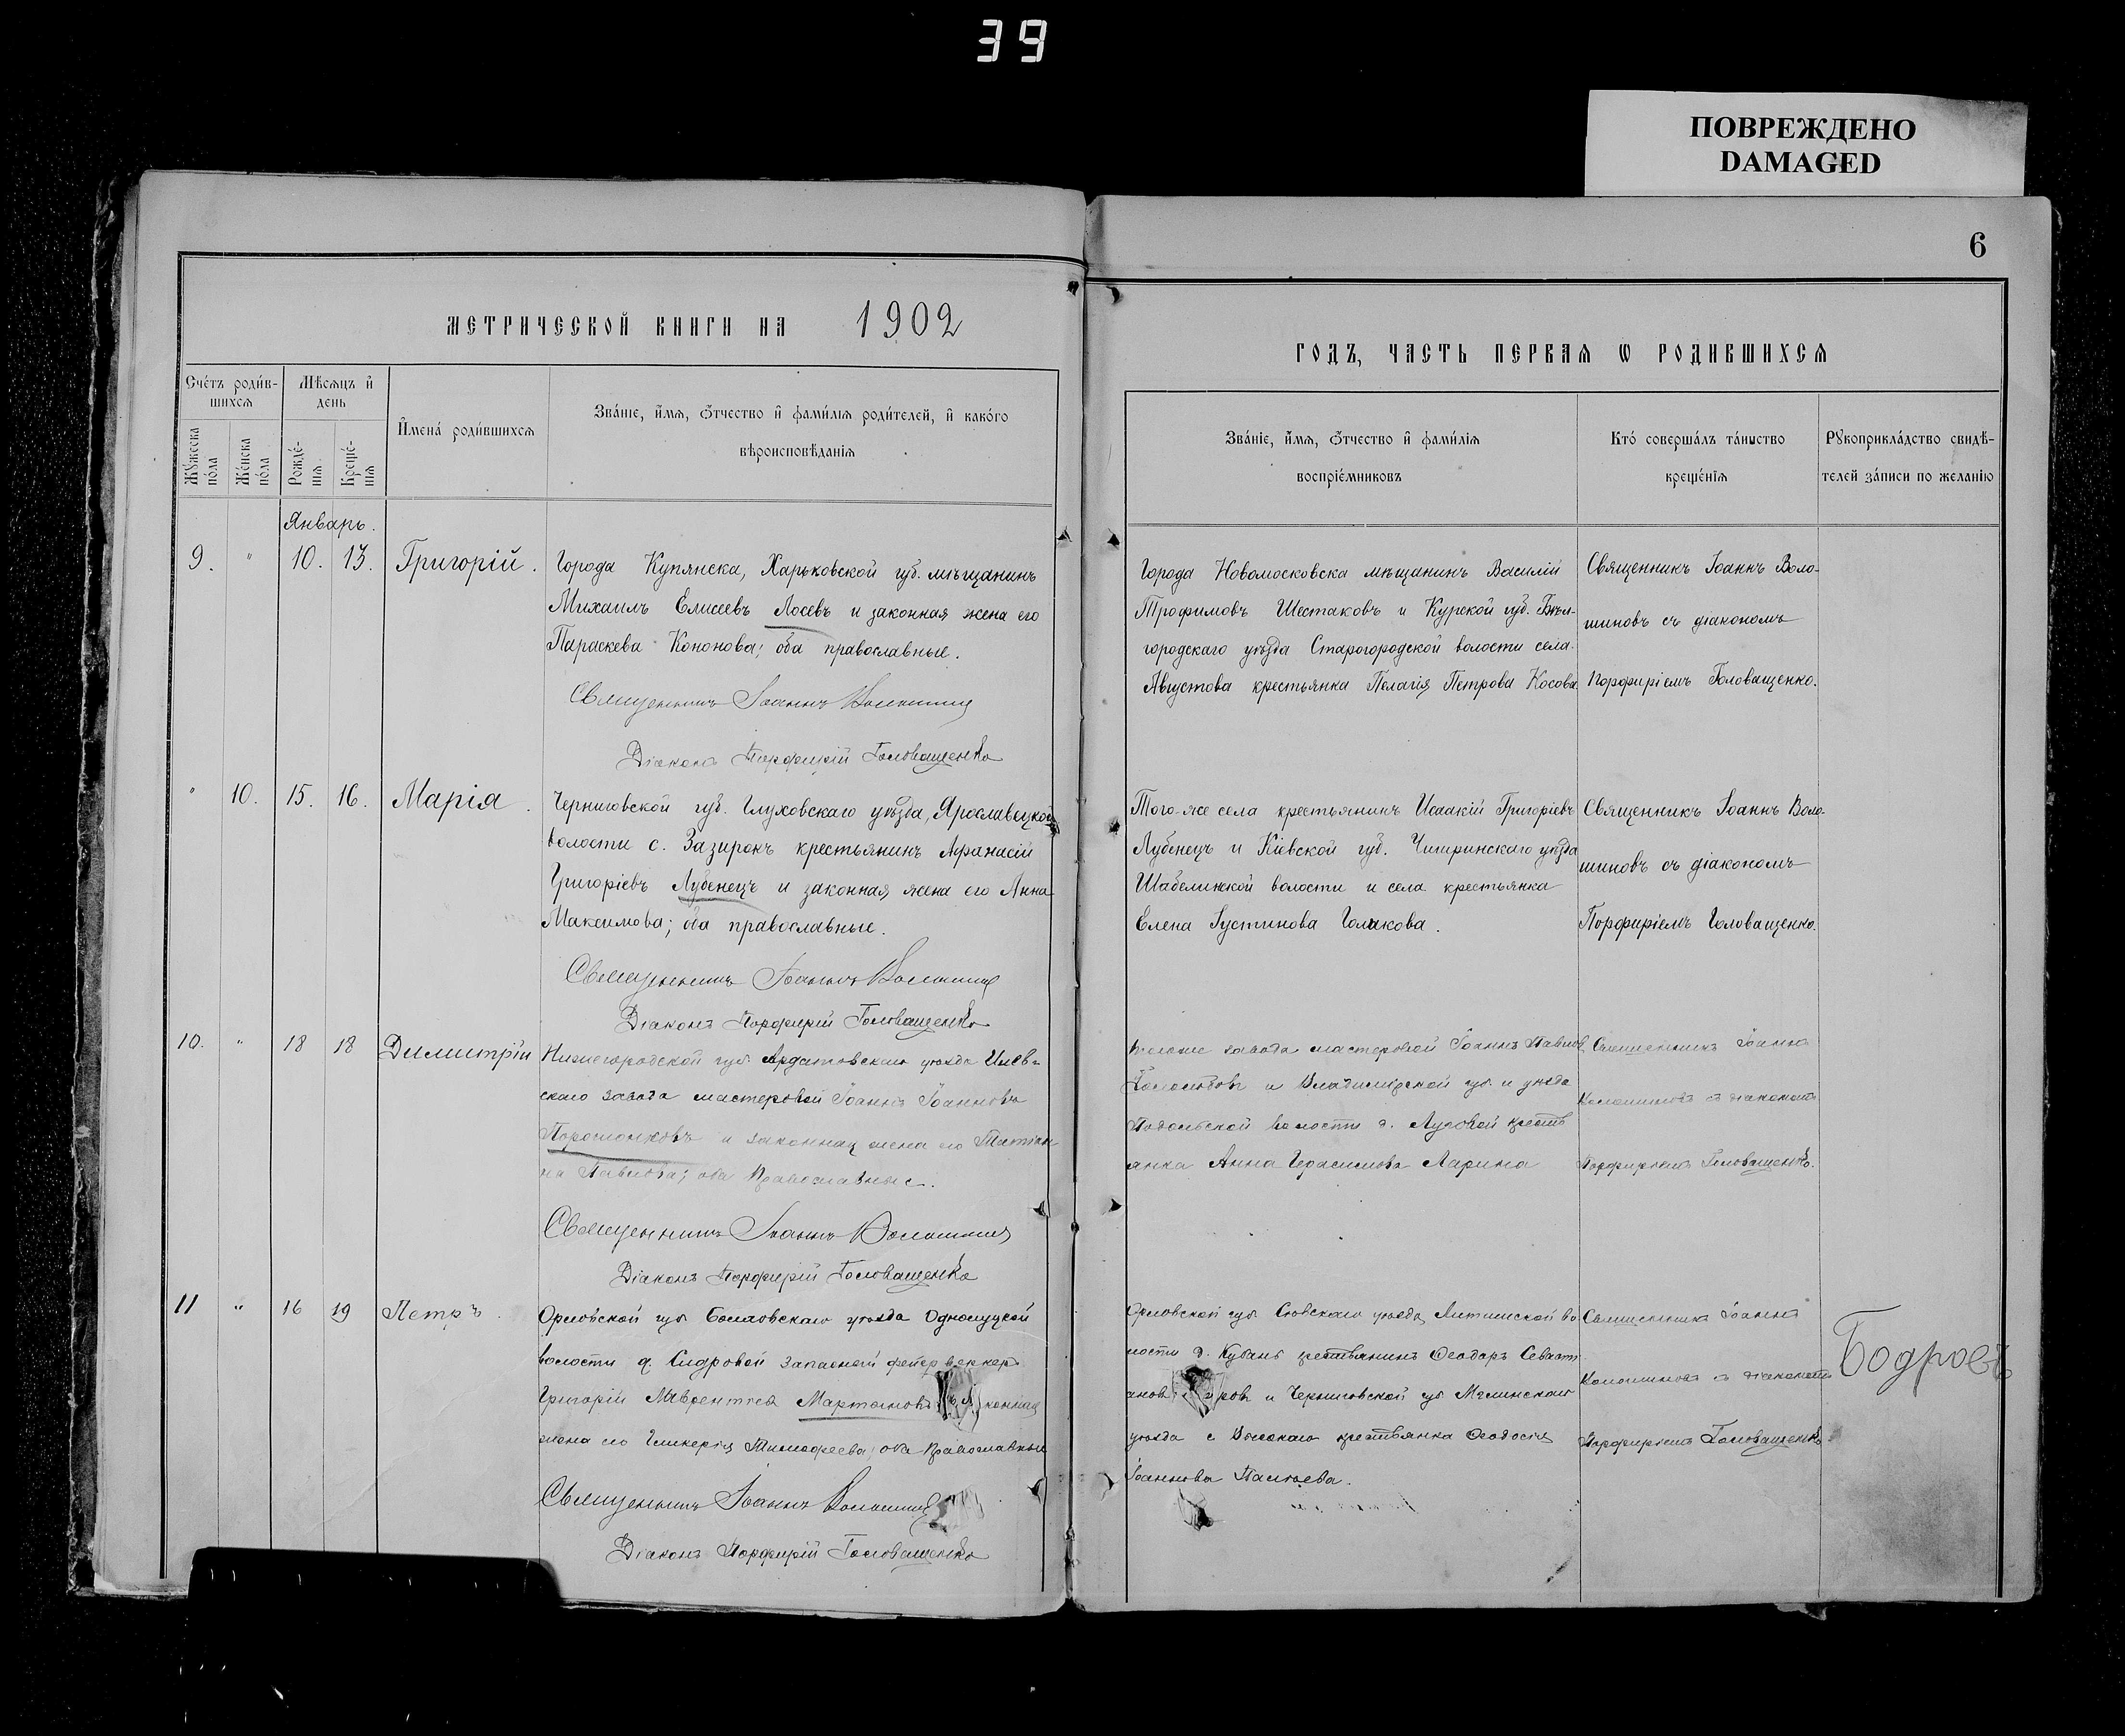 39
ПОВРЕЖДЕНО
DAMAGED
6
МЕТРИЧЕСКОЙ КНИГИ НА 1902
ГОДЪ, ЧАСТЬ ПЕРВАЯ Ѡ РОДИВШИХСѦ
Сче́тъ роди́в-
шихсѧ
Мѣсѧцъ и҆
день
И҆мена̀ роди́вшихсѧ
Зва́нїе, и҆́мѧ, ѻ҆́тчество и҆ фами́лїѧ роди́телей, и҆ како́го
вѣроисповѣ́данїѧ
Мꙋ́жеска
по́ла
Же́нска
по́ла
Рожде́-
нїѧ
Креще́-
нїѧ
Зва́нїе, и҆́мѧ, ѻ҆́тчество и҆ фами́лїѧ
воспрїе́мниковъ
Кто̀ соверша́лъ та́инство
креще́нїѧ
Рꙋкоприкла́дство свидѣ́-
телей за́писи по жела́нїю
Январь.
9. " 10. 13. Григорій.
Города Купянска, Харьковской губ. мѣщанинъ
Михаилъ Елисеевъ Лосевъ и законная жена его
Параскева Кононова; оба православные.
Священникъ Іоаннъ Волошинъ
Діаконъ Порфирій Головащенко
Города Новомосковска мѣщанинъ Василій
Трофимовъ Шестаковъ и Курской губ. Бѣл-
городскаго уѣзда Старогородской волости села
Августова крестьянка Пелагія Петрова Косова.
Священникъ Іоаннъ Воло-
шиновъ съ діакономъ
Порфиріемъ Головащенко.
" 10. 15. 16. Марія.
Черниговской губ. Глуховскаго уѣзда, Ярославецкой
волости с. Зазирокъ крестьянинъ Афанасій
Григоріевъ Лубенецъ и законная жена его Анна
Максимова; оба православные.
Священникъ Іоаннъ Волошинъ
Діаконъ Порфирій Головащенко
Того-же села крестьянинъ Исаакій Григоріевъ
Лубенецъ и Кіевской губ. Чигиринскаго уѣзда
Шабелинской волости и села крестьянка
Елена Іустинова Голакова.
Священникъ Іоаннъ Воло-
шиновъ съ діакономъ
Порфиріемъ Головащенко.
10. " 18 18 Димитрій
Нижегородской губ Ардатовскаго уѣзда Илев-
скаго завода мастеровой Іоаннъ Іоанновъ
и законная жена его Татіа-
на Павлова; оба Православные.
Священникъ Іоаннъ Волошинъ
Діаконъ Порфирій Головащенко
завода мастеровой Іоаннъ Павлов
и Владимірской губ. и уѣзда
волости д. крестья
янка Анна Герасимова Ларина
Священникъ Іоаннъ
Волошиновъ съ діакономъ
Порфиріемъ Головащенко.
11 " 16 19 Петръ.
Орловской губ Болховскаго уѣзда Однолуцкой
волости д. Сидровой запасной фейерверкеръ
Григорій Лаврентіевъ Мартыновъ конная
жена его Гликерія Тимофеева; оба Православные
Священникъ Іоаннъ Волошинъ
Діаконъ Порфирій Головащенко
Орловской губ Сѣвскаго уѣзда во
лости д. крестьянинъ Ѳеодоръ Севасти
анов ровъ и Черниговской губ Мглинскаго
уѣзда с крестьянка Ѳеодосія
Іоаннова
Священникъ Іоаннъ
Волошиновъ съ діакономъ
Порфиріемъ Головащенко
Бодровъ